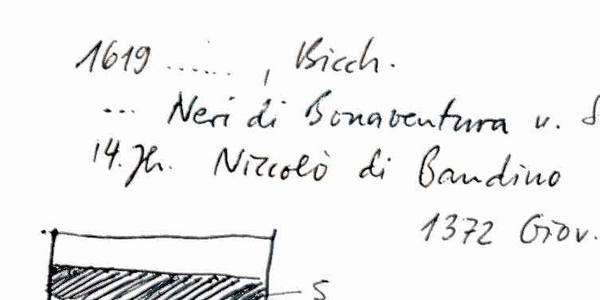 1619 ...... , Bicch.
... Neri di Bonaventura v. S
14. Jh. Niccolò di Bandino
1372 Giov.
S